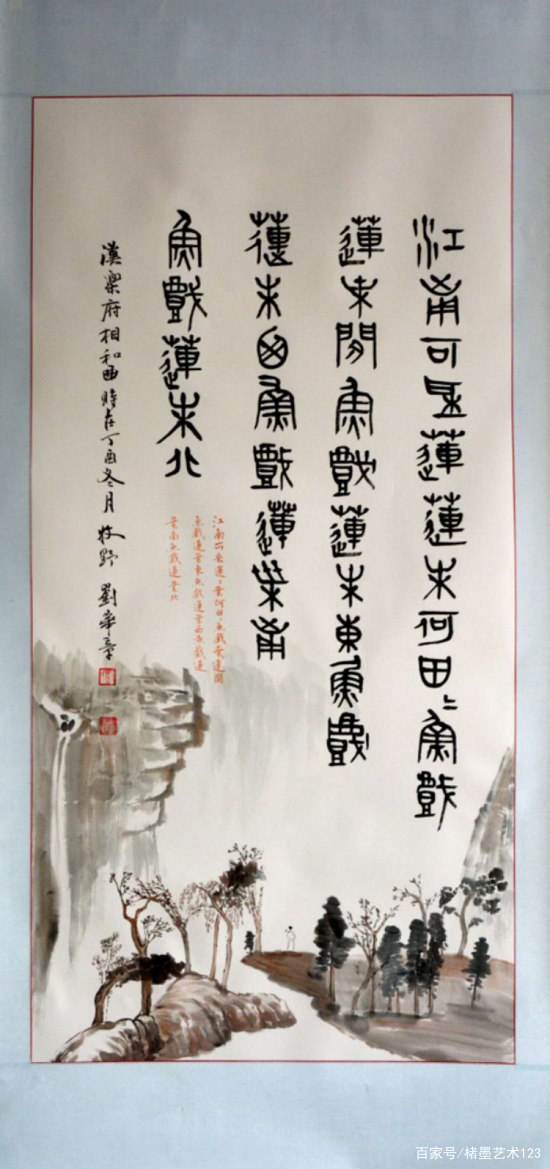 江南可采蓮蓮葉何田〻魚戲
蓮葉間魚戲蓮葉東魚戲
蓮葉西魚戲蓮葉南
魚戲蓮葉北
江南可采蓮〻葉何田〻魚戲葉蓮間
魚戲蓮葉東魚戲蓮葉西魚戲蓮
葉南魚戲蓮葉北
漢樂府相和曲時在丁酉冬月牧野劉華章
百家号/楮墨艺术123